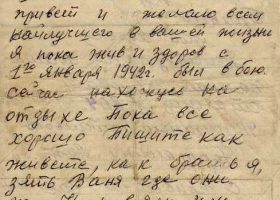 привет и желаю всем
наилучшего в вашей жизни
я пока жив и здоров с
1го января 1942г. был в бою.
сейчас нахожусь на
отдыхе Пока все
хорошо Пишите как
живете, как братья,
зять Ваня где они